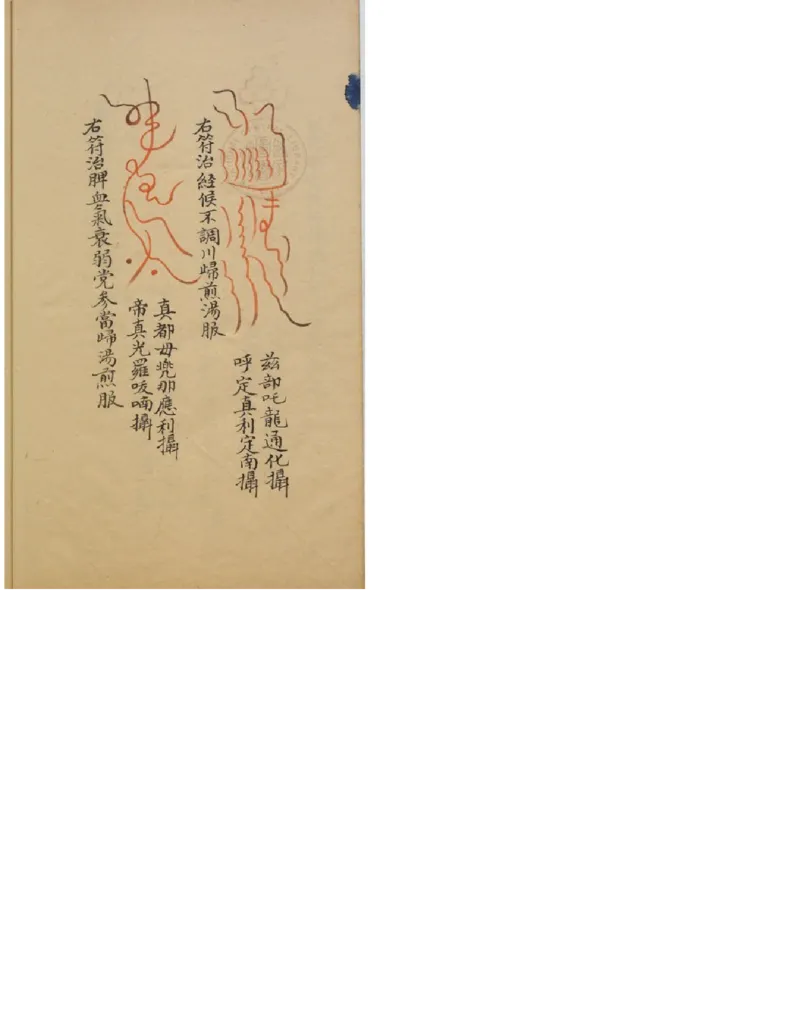 茲部吒龍通化攝
呼定真利定南攝
右符治経候不調川歸煎湯服
真都毋兠那應利攝
帝真光羅唆喃攝
右符治脾無氣衰弱党参當歸湯煎服